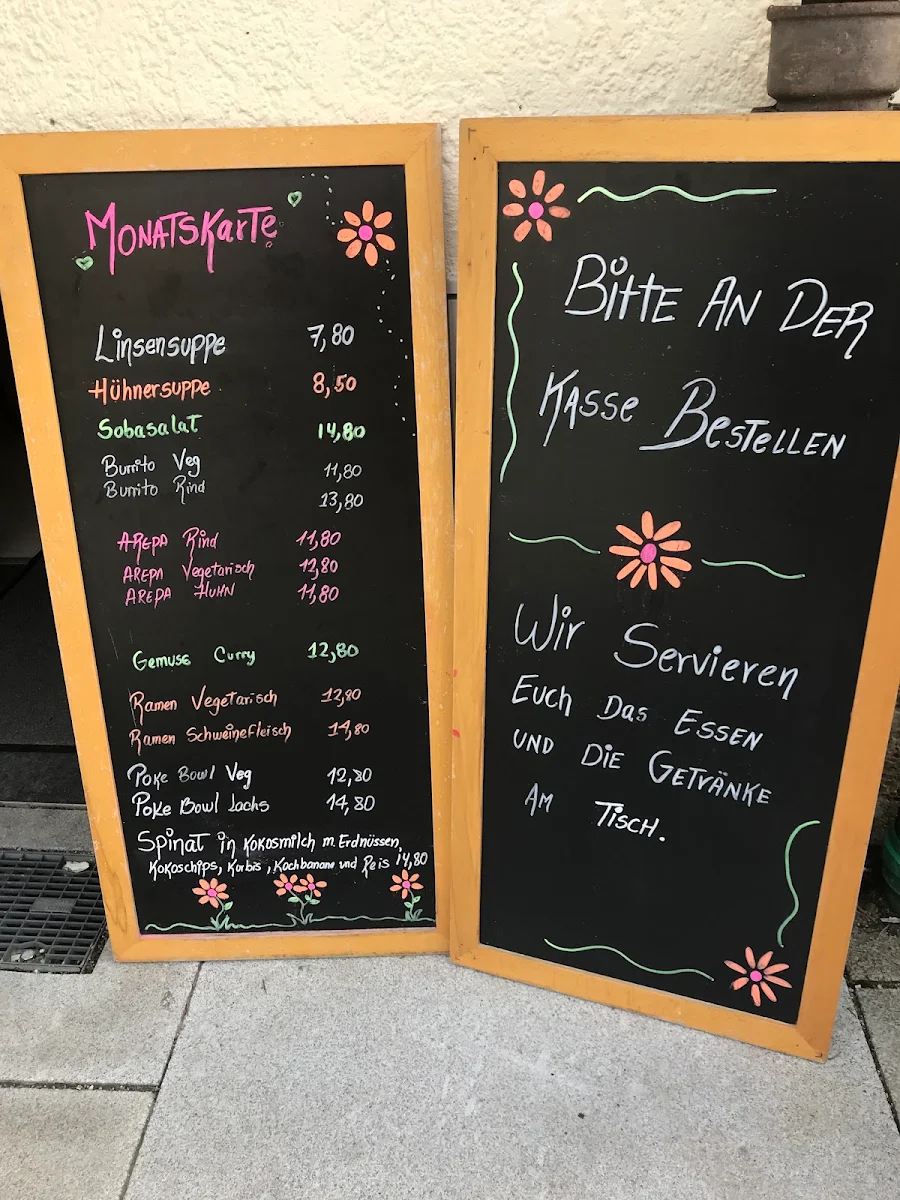 Monatskarte
Linsensuppe 7,80
Hühnersuppe 8,50
Sobasalat 14,80
Burrito Veg 11,80
Burrito Rind 13,80
Arepa Rind 11,80
Arepa Vegetarisch 12,80
Arepa Huhn 11,80
Gemuse Curry 12,80
Ramen Vegetarisch 12,80
Ramen Schweinefleisch 14,80
Poke Bowl Veg 12,80
Poke Bowl Lachs 14,80
Spinat in Kokosmilch m. Erdnüssen,
Kokoschips, Kürbis, Kochbanane und Reis 14,80
Bitte An Der
Kasse Bestellen
Wir Servieren
Euch Das Essen
und Die Getränke
Am Tisch.